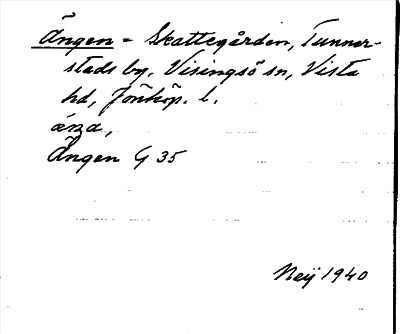 Ängen = Skattegården, Tunner-
stads by, Visingsö sn, Vista
hd, Jönköp. l.
Ängen G 35
Neij 1940